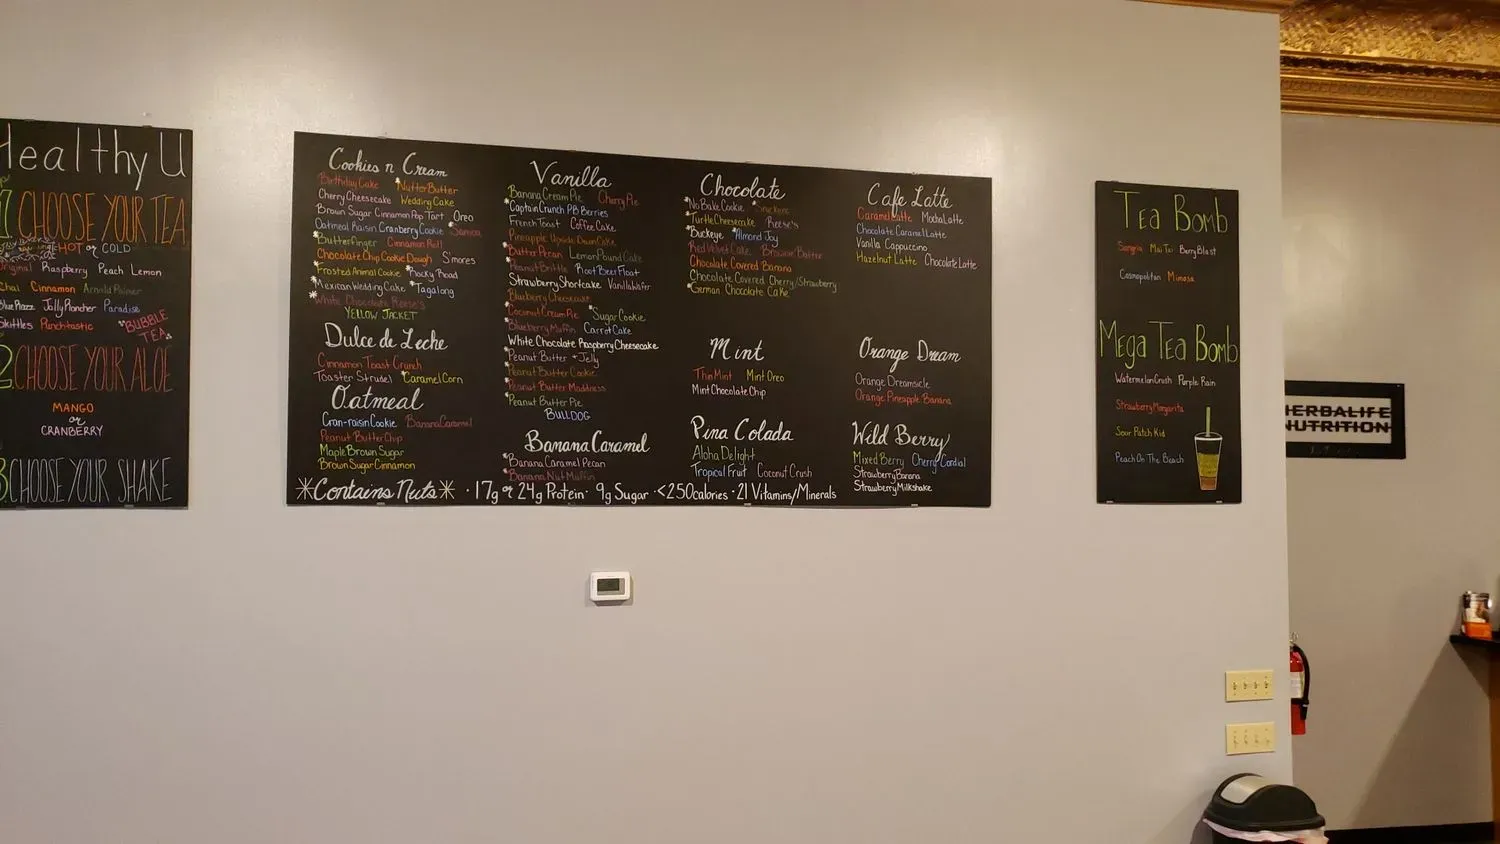 Healthy U
1 CHOOSE YOUR TEA
HOT or COLD
Original Raspberry Peach Lemon
Chai Cinnamon Arnold Palmer
Blue Razz Jolly Rancher Paradise
Skittles Punchtastic *BUBBLE TEA*
2 CHOOSE YOUR ALOE
MANGO
or
CRANBERRY
3 CHOOSE YOUR SHAKE
Cookies n Cream
Birthday Cake *Nutter Butter
Cherry Cheesecake Wedding Cake
Brown Sugar Cinnamon Pop Tart Oreo
Oatmeal Raisin Cranberry Cookie *Samoa
*Butterfinger Cinnamon Roll
Chocolate Chip Cookie Dough S'mores
*Frosted Animal Cookie *Rocky Road
*Mexican Wedding Cake *Tagalong
*White Chocolate Reese's
YELLOW JACKET
Dulce de Leche
Cinnamon Toast Crunch
Toaster Strudel *Caramel Corn
Oatmeal
Cran-raisin Cookie Banana Caramel
Peanut Butter Chip
Maple Brown Sugar
Brown Sugar Cinnamon
Vanilla
Banana Cream Pie Cherry Pie
*Captain Crunch PB Berries
French Toast Coffee Cake
Pineapple Upside Down Cake
*Butter Pecan Lemon Pound Cake
*Peanut Brittle Root Beer Float
Strawberry Shortcake Vanilla Wafer
Blueberry Cheesecake
*Coconut Cream Pie *Sugar Cookie
*Blueberry Muffin Carrot Cake
White Chocolate Raspberry Cheesecake
*Peanut Butter + Jelly
*Peanut Butter Cookie
*Peanut Butter Maddness
*Peanut Butter Pie
BULLDOG
Banana Caramel
*Banana Caramel Pecan
*Banana Nut Muffin
Chocolate
*No Bake Cookie *Snickers
*Turtle Cheesecake *Reese's
*Buckeye *Almond Joy
Red Velvet Cake Brownie Batter
Chocolate Covered Banana
Chocolate Covered Cherry/Strawberry
*German Chocolate Cake
Mint
Thin Mint Mint Oreo
Mint Chocolate Chip
Pina Colada
Aloha Delight
Tropical Fruit Coconut Crush
Cafe Latte
Caramel Latte Mocha Latte
Chocolate Caramel Latte
Vanilla Cappuccino
Hazelnut Latte Chocolate Latte
Orange Dream
Orange Dreamsicle
Orange Pineapple Banana
Wild Berry
Mixed Berry Cherry Cordial
Strawberry Banana
Strawberry Milkshake
*Contains Nuts* · 17g or 24g Protein · 9g Sugar · <250calories · 21 Vitamins/Minerals
Tea Bomb
Sangria Mai Tai Berry Blast
Cosmopolitan Mimosa
Mega Tea Bomb
Watermelon Crush Purple Rain
Strawberry Margarita
Sour Patch Kid
Peach On The Beach
HERBALIFE
NUTRITION